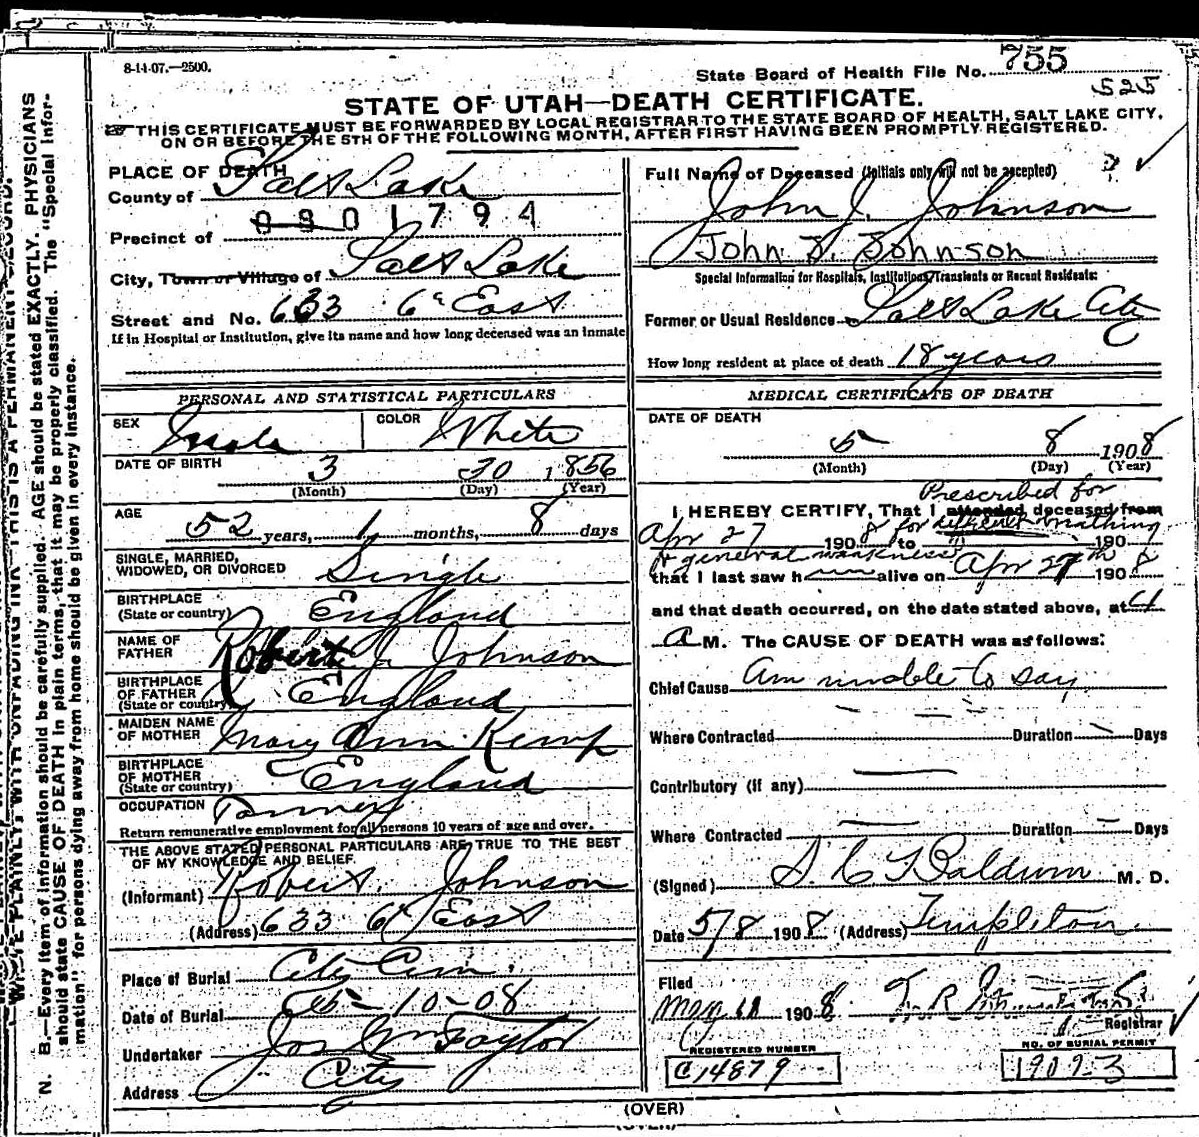 8-14-07.—2500.
State Board of Health File No. 755
525
STATE OF UTAH—DEATH CERTIFICATE.
THIS CERTIFICATE MUST BE FORWARDED BY LOCAL REGISTRAR TO THE STATE BOARD OF HEALTH, SALT LAKE CITY,
ON OR BEFORE THE 5TH OF THE FOLLOWING MONTH, AFTER FIRST HAVING BEEN PROMPTLY REGISTERED.
PLACE OF DEATH
County of Salt Lake
0901794
Precinct of
City, Town or Village of Salt Lake
Street and No. 633 6th East
If in Hospital or Institution, give its name and how long deceased was an inmate
PERSONAL AND STATISTICAL PARTICULARS
SEX Male COLOR White
DATE OF BIRTH 3 30 1856
(Month) (Day) (Year)
AGE
52 years, 1 months, 8 days
SINGLE, MARRIED,
WIDOWED, OR DIVORCED Single
BIRTHPLACE
(State or country) England
NAME OF
FATHER Robert J. Johnson
BIRTHPLACE
OF FATHER
(State or country) England
MAIDEN NAME
OF MOTHER Mary Ann Kemp
BIRTHPLACE
OF MOTHER
(State or country) England
OCCUPATION Tanner
Return remunerative employment for all persons 10 years of age and over.
THE ABOVE STATED PERSONAL PARTICULARS ARE TRUE TO THE BEST
OF MY KNOWLEDGE AND BELIEF.
(Informant) Robert Johnson
(Address) 633 6th East
Place of Burial City Cem.
Date of Burial 5-10-08
Undertaker Jos Wm Taylor
Address City
Full Name of Deceased (Initials only will not be accepted)
John J. Johnson
John J. Johnson
Special Information for Hospitals, Institutions, Transients or Recent Residents:
Former or Usual Residence Salt Lake City
How long resident at place of death 18 years
MEDICAL CERTIFICATE OF DEATH
DATE OF DEATH
5 8 1908
(Month) (Day) (Year)
Prescribed for
I HEREBY CERTIFY, That I attended deceased from
Apr 27 1908 for difficult breathing to 190
& general weakness
that I last saw h im alive on Apr 27th 1908
and that death occurred, on the date stated above, at
A M. The CAUSE OF DEATH was as follows:
Chief Cause Am unable to say
Where Contracted Duration Days
Contributory (if any)
Where Contracted Duration Days
(Signed) S. C. Baldwin M. D.
Date 5/8 1908 (Address) Templeton
Filed
May 11 1908
Registrar
REGISTERED NUMBER
C14879
NO. OF BURIAL PERMIT
19093
(OVER)
N. B.—Every item of information should be carefully supplied. AGE should be stated EXACTLY. PHYSICIANS
should state CAUSE OF DEATH in plain terms, that it may be properly classified. The "Special Infor-
mation" for persons dying away from home should be given in every instance.